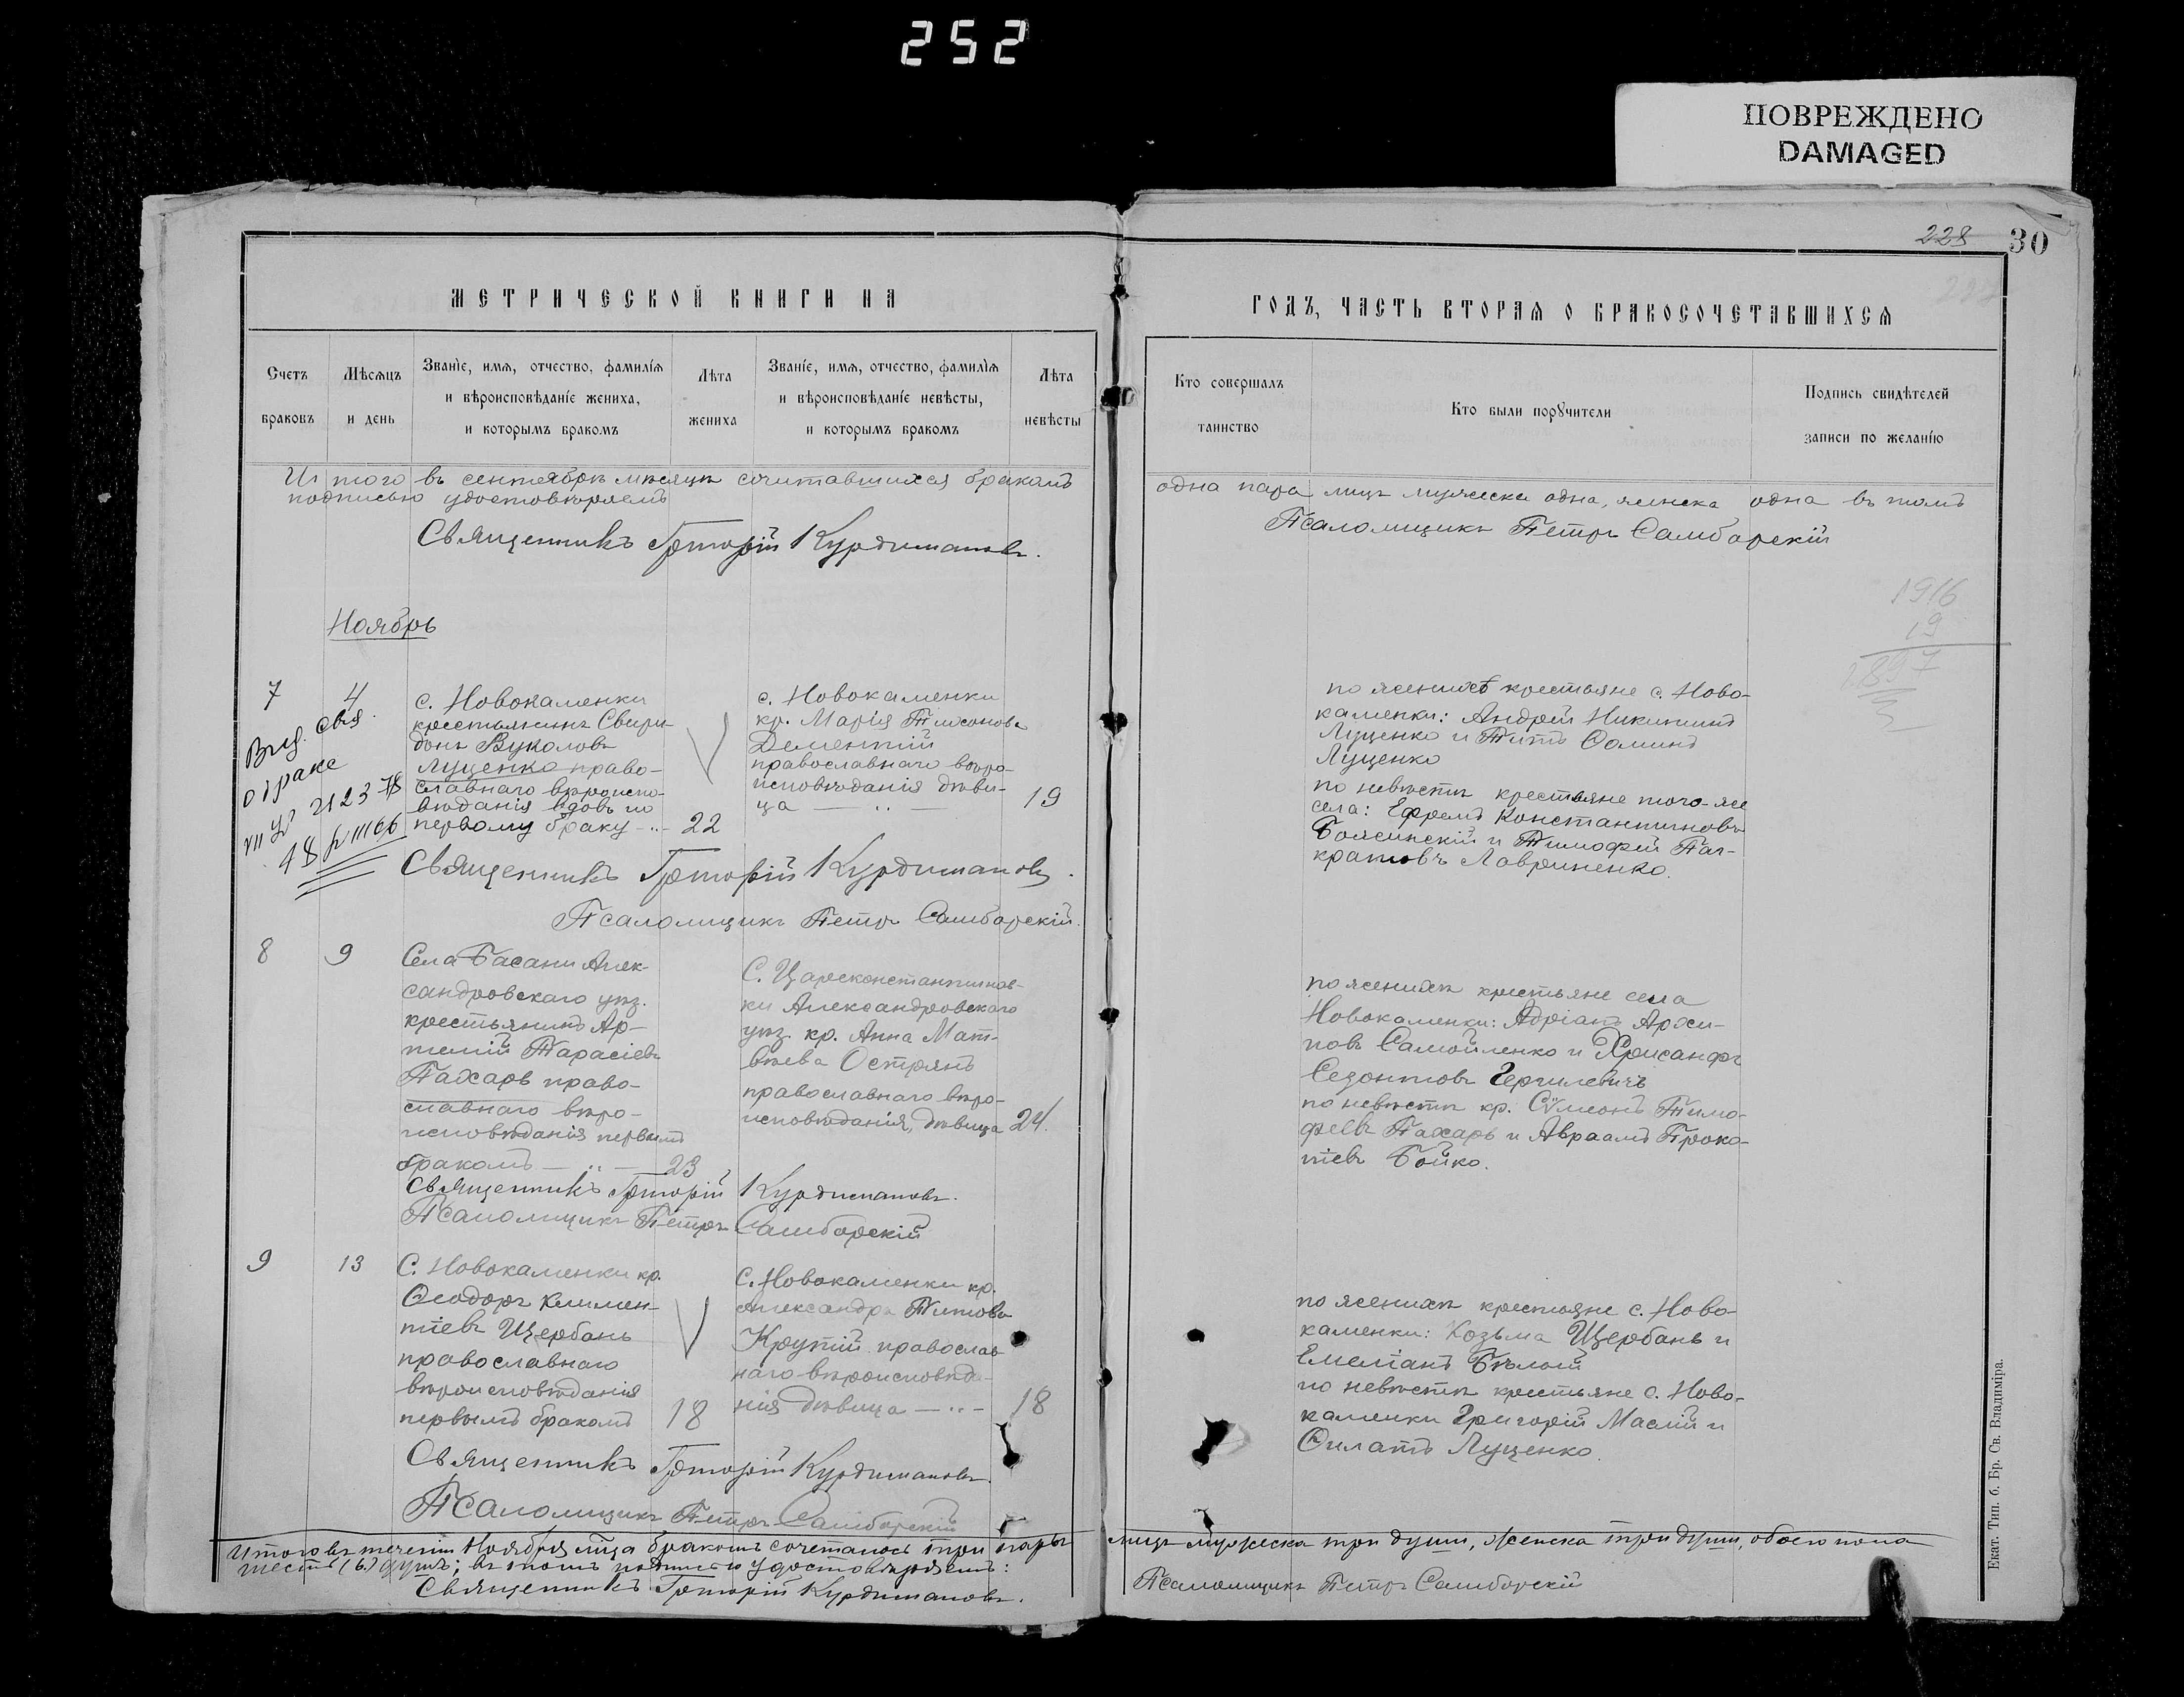 252
ПОВРЕЖДЕНО
DAMAGED
228 30
МЕТРИЧЕСКОЙ КНИГИ НА
ГОДЪ, ЧАСТЬ ВТОРАЯ О БРАКОСОЧЕТАВШИХСЯ
Счетъ браковъ
Мѣсяцъ и день
Званіе, имя, отчество, фамилія
и вѣроисповѣданіе жениха,
и которымъ бракомъ
Лѣта жениха
Званіе, имя, отчество, фамилія
и вѣроисповѣданіе невѣсты,
и которымъ бракомъ
Лѣта невѣсты
Кто совершалъ
таинство
Кто были поручители
Подпись свидѣтелей
записи по желанію
Ит того въ сентябрѣ мѣсяцѣ сочитавшихся бракомъ
одна пара лицъ мужеска одна, женска одна въ томъ
подписью удостовѣряемъ
Священникъ Григорій Курдимановъ.
Псаломщикъ Петръ Самборскій
1916
19
1897
Ноябрь
7
4
с. Новокаменки
крестьянинъ Свири-
донъ Вуколовъ
Луценко право-
славнаго вѣроиспо-
вѣданія вдовъ по
первому браку 22
с. Новокаменки
кр. Марія Тимонова
Дементій
православнаго вѣро-
исповѣданія дѣви-
ца 19
по женихѣ крестьяне с. Ново-
каменки: Андрей Никитинъ
Луценко и Титъ Ѳоминъ
Луценко
по невѣстѣ крестьяне того-же
села: Ефремъ Константиновъ
и Тимофей Пан-
кратовъ Лавриненко.
о браке
Священникъ Григорій Курдимановъ.
Псаломщикъ Петръ Самборскій.
8
9
Села Басани Алек-
сандровскаго уѣз.
крестьянинъ Ар-
темій Тарасіевъ
Пахарь право-
славнаго вѣро-
исповѣданія первымъ
бракомъ 23
С. Цареконстантинов-
ки Александровскаго
уѣз. кр. Анна Мат-
вѣева Острянъ
православнаго вѣро-
исповѣданія, дѣвица 24.
по женихѣ крестьяне села
Новокаменки: Адріанъ Архи-
повъ Самойленко и Хрисанфъ
по невѣстѣ кр. Сѵмеонъ Тимо-
феевъ Пахарь и Авраамъ Проко-
піевъ Бойко.
Священникъ Григорій Курдимановъ.
Псаломщикъ Петръ Самборскій
9
13
С. Новокаменки кр.
Ѳеодоръ Климен-
тіевъ Щербань
православнаго
вѣроисповѣданія
первымъ бракомъ 18
С. Новокаменки кр.
Александра Титова
Крутій православ
наго вѣроисповѣда-
нія дѣвица 18
по женихѣ крестьяне с. Ново-
каменки: Козьма Щербань и
Емеліанъ Бѣлый
по невѣстѣ крестьяне с. Ново-
каменки Григорій Маслій и
Филатъ Луценко.
Священникъ Григорій Курдимановъ.
Псаломщикъ Петръ Самборскій
Итого въ теченіи Ноября м-ца бракомъ сочеталось три пары
лицъ мужеска три души, женска три души, обоего пола
шесть (6) душъ; въ томъ подписью удостовѣряемъ:
Священникъ Григорій Курдимановъ.
Псаломщикъ Петръ Самборскій
Екат. Тип. б. Бр. Св. Владиміра.